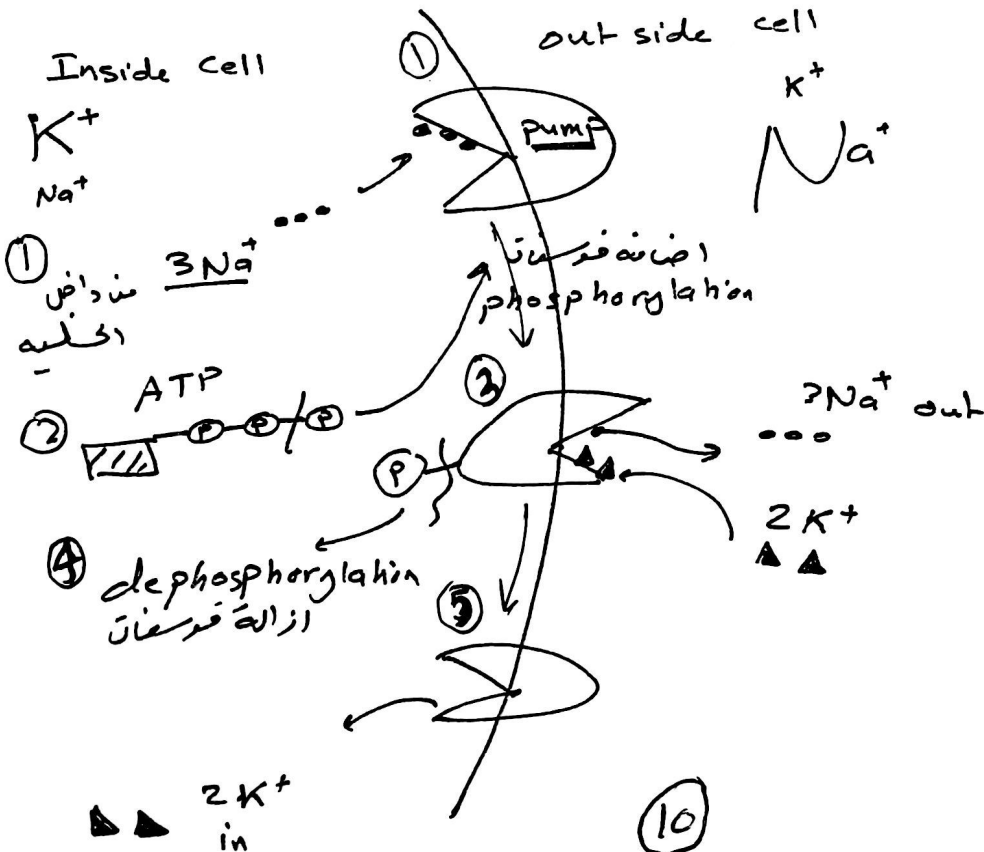 Inside cell
out side cell
①
K⁺
Na⁺
K⁺
Na⁺
pump
① 3Na⁺
من داخل
الخلية
اضافه فوسفات
phosphorylation
② ATP
P P P
③
P
3Na⁺ out
2K⁺
④ dephosphorylation
ازالة فوسفات
⑤
2K⁺
in
⑩